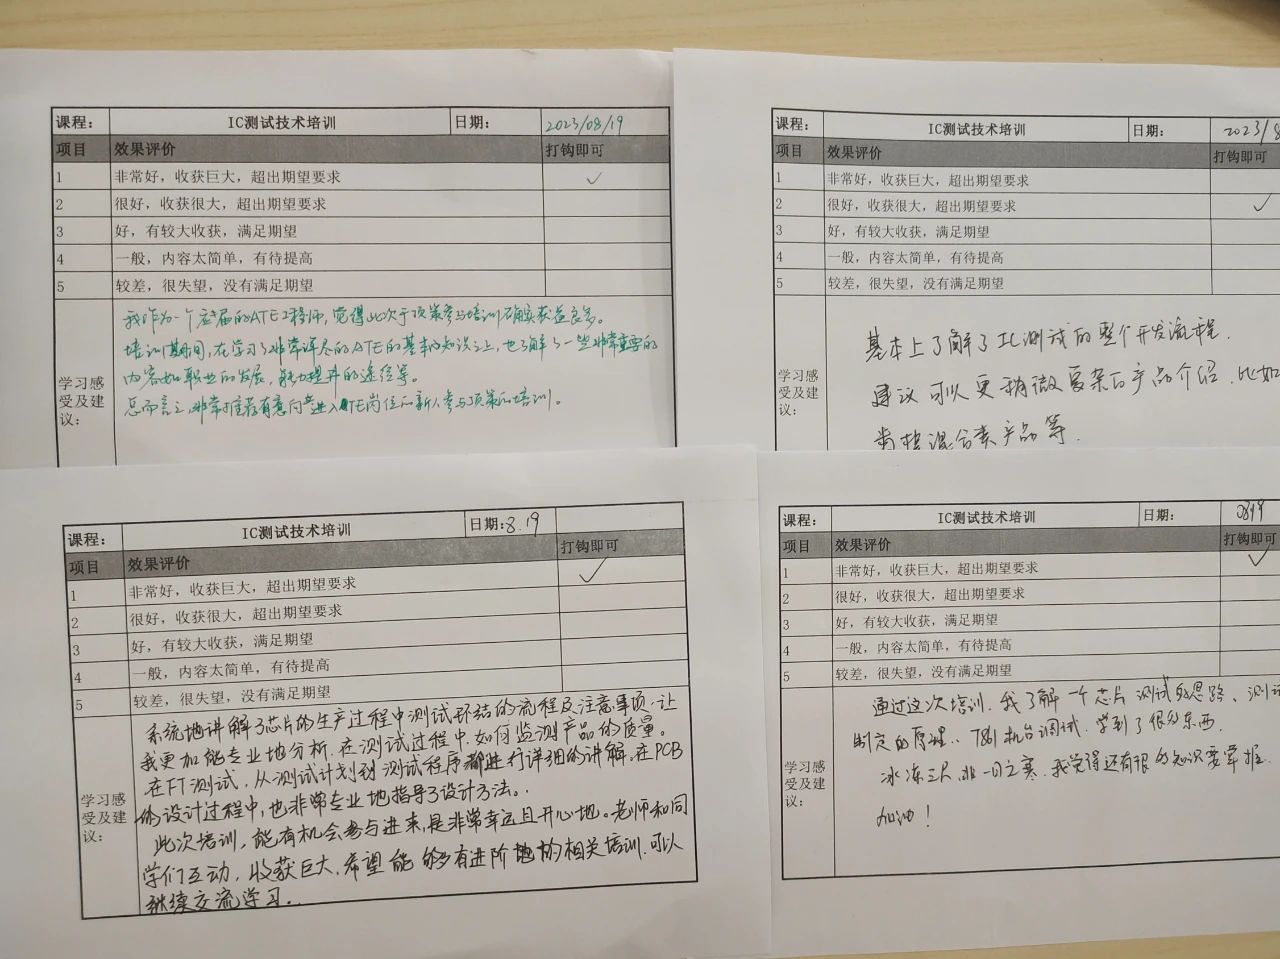 课程： IC测试技术培训 日期： 2023/08/19
项目 效果评价 打钩即可
1 非常好，收获巨大，超出期望要求 ✓
2 很好，收获很大，超出期望要求
3 好，有较大收获，满足期望
4 一般，内容太简单，有待提高
5 较差，很失望，没有满足期望
学习感受及建议：
我作为一个应届的ATE工程师，觉得此次于顶策参与培训确实获益良多。
培训期间，在学习了非常详尽的ATE的基本知识之上，也了解了一些非常重要的
内容如职业的发展，能力提升的途径等。
总而言之，非常推荐有意向进入ATE岗位的新人参与顶策的培训。
课程： IC测试技术培训 日期： 2023/8
项目 效果评价 打钩即可
1 非常好，收获巨大，超出期望要求
2 很好，收获很大，超出期望要求 ✓
3 好，有较大收获，满足期望
4 一般，内容太简单，有待提高
5 较差，很失望，没有满足期望
学习感受及建议：
基本上了解了IC测试的整个开发流程.
建议可以更稍微复杂的产品介绍，比如
混合类产品等.
课程： IC测试技术培训 日期：8.19
项目 效果评价 打钩即可
1 非常好，收获巨大，超出期望要求 ✓
2 很好，收获很大，超出期望要求
3 好，有较大收获，满足期望
4 一般，内容太简单，有待提高
5 较差，很失望，没有满足期望
学习感受及建议：
系统地讲解了芯片的生产过程中测试环结的流程及注意事项，让
我更加能专业地分析，在测试过程中，如何监测产品的质量。
在FT测试，从测试计划到测试程序都进行详细的讲解，在PCB
的设计过程中，也非常专业地指导了设计方法。
此次培训，能有机会参与进来，是非常幸运且开心地。老师和同
学们互动，收获巨大，希望能够有进阶地的相关培训，可以
继续交流学习..
课程： IC测试技术培训 日期： 0819
项目 效果评价 打钩即可
1 非常好，收获巨大，超出期望要求 ✓
2 很好，收获很大，超出期望要求
3 好，有较大收获，满足期望
4 一般，内容太简单，有待提高
5 较差，很失望，没有满足期望
学习感受及建议：
通过这次培训，我了解一个芯片测试的思路、测试
制定的原理、机台调试，学到了很多东西
冰冻三尺，非一日之寒，我觉得还有很多知识要掌握.
加油！